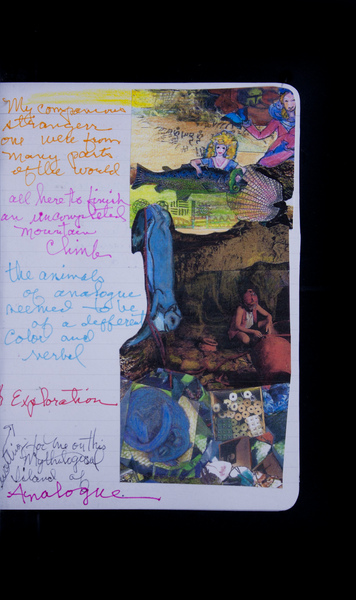 My companions
strangers
one were from
many parts
of the world
all here to finish
an uncompleted
mountain
Climb
the animals
of analogue
seemed to be
of a different
Color and
verbal
Exploration
for me on this
Mythological
Island of
Analogue